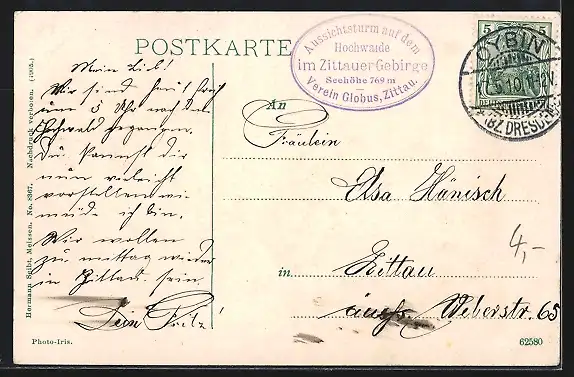 POSTKARTE
Aussichtsturm auf dem
Hochwalde
im Zittauer Gebirge
Seehöhe 769 m
Verein Globus, Zittau.
5 5
OYBIN
(BZ. DRESDEN)
Mein Lieb!
Wir sind heut früh
um 5 Uhr nach dem
Hochwald gegangen.
Du kannst dir
nun vorstellen wie
müde ich bin.
Wir wollen
zu mittag wieder
in Zittau sein.
Dein Fritz!
An
Fräulein
Elsa Hänisch
in Zittau
Weberstr. 65
4,-
Hermann Seibt, Meissen. No. 8367. Nachdruck verboten. (1905.)
Photo-Iris.
62580